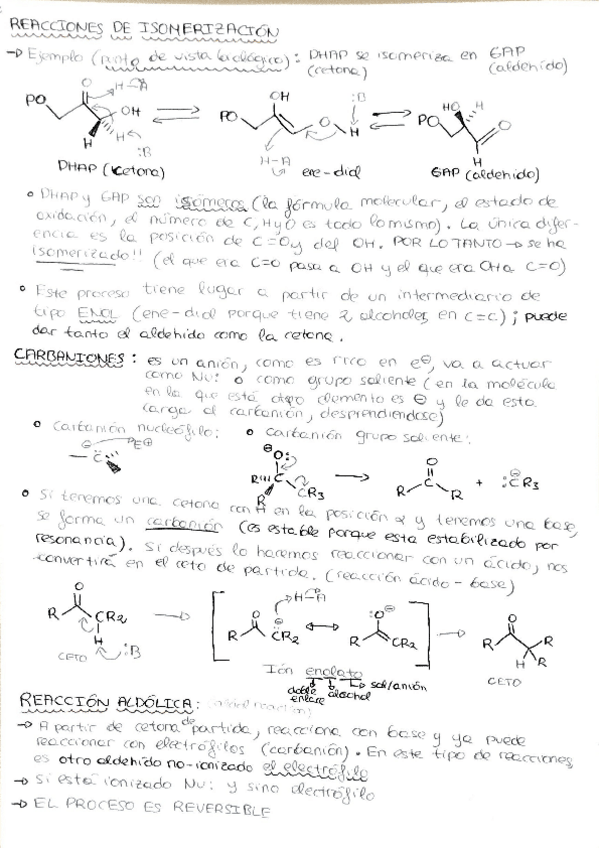 REACCIONES DE ISOMERIZACIÓN
→ Ejemplo (punto de vista biológico): DHAP se isomeriza en GAP
(cetona) (aldehido)
O H-A OH :B HO H
PO OH PO O-H PO O
H H :B H-A H
DHAP (cetona) ene-diol GAP (aldehido)
• DHAP y GAP son isómeros (la fórmula molecular, el estado de
oxidación, el número de C, H y O es todo lo mismo). La única difer-
encia es la posición de C=O y del OH. POR LO TANTO → se ha
isomerizado!! (el que era C=O pasa a OH y el que era OH a C=O)
• Este proceso tiene lugar a partir de un intermediario de
tipo ENOL (ene-diol porque tiene 2 alcoholes en C=C); puede
dar tanto el aldehido como la cetona.
CARBANIONES: es un anión, como es rico en e⊖, va a actuar
como Nu: o como grupo saliente (en la molécula
en la que está otro elemento es ⊖ y le da esta
carga al carbanión, desprendiendose)
• Carbanión nucleófilo: • Carbanión grupo saliente:
⊖ E⊕ ⊖O: O
C R C CR3 → R C R + :CR3 ⊖
R
• Si tenemos una cetona con H en la posición α y tenemos una base,
se forma un carbanión (es estable porque esta estabilizado por
resonancia). Si después lo haremos reaccionar con un ácido, nos
convertirá en el ceto de partida. (reacción ácido-base)
O H-A :O⊖ O
R CR2 → R CR2 ↔ R CR2 → R R
H :B H R
CETO Ión enolato CETO
doble enlace alcohol sal/anión
REACCIÓN ALDÓLICA:
→ A partir de cetona de partida, reacciona con base y ya puede
reaccionar con electrófilos (carbanión). En este tipo de reacciones
es otro aldehido no-ionizado el electrófilo
→ Si está ionizado Nu: y sino electrófilo
→ EL PROCESO ES REVERSIBLE